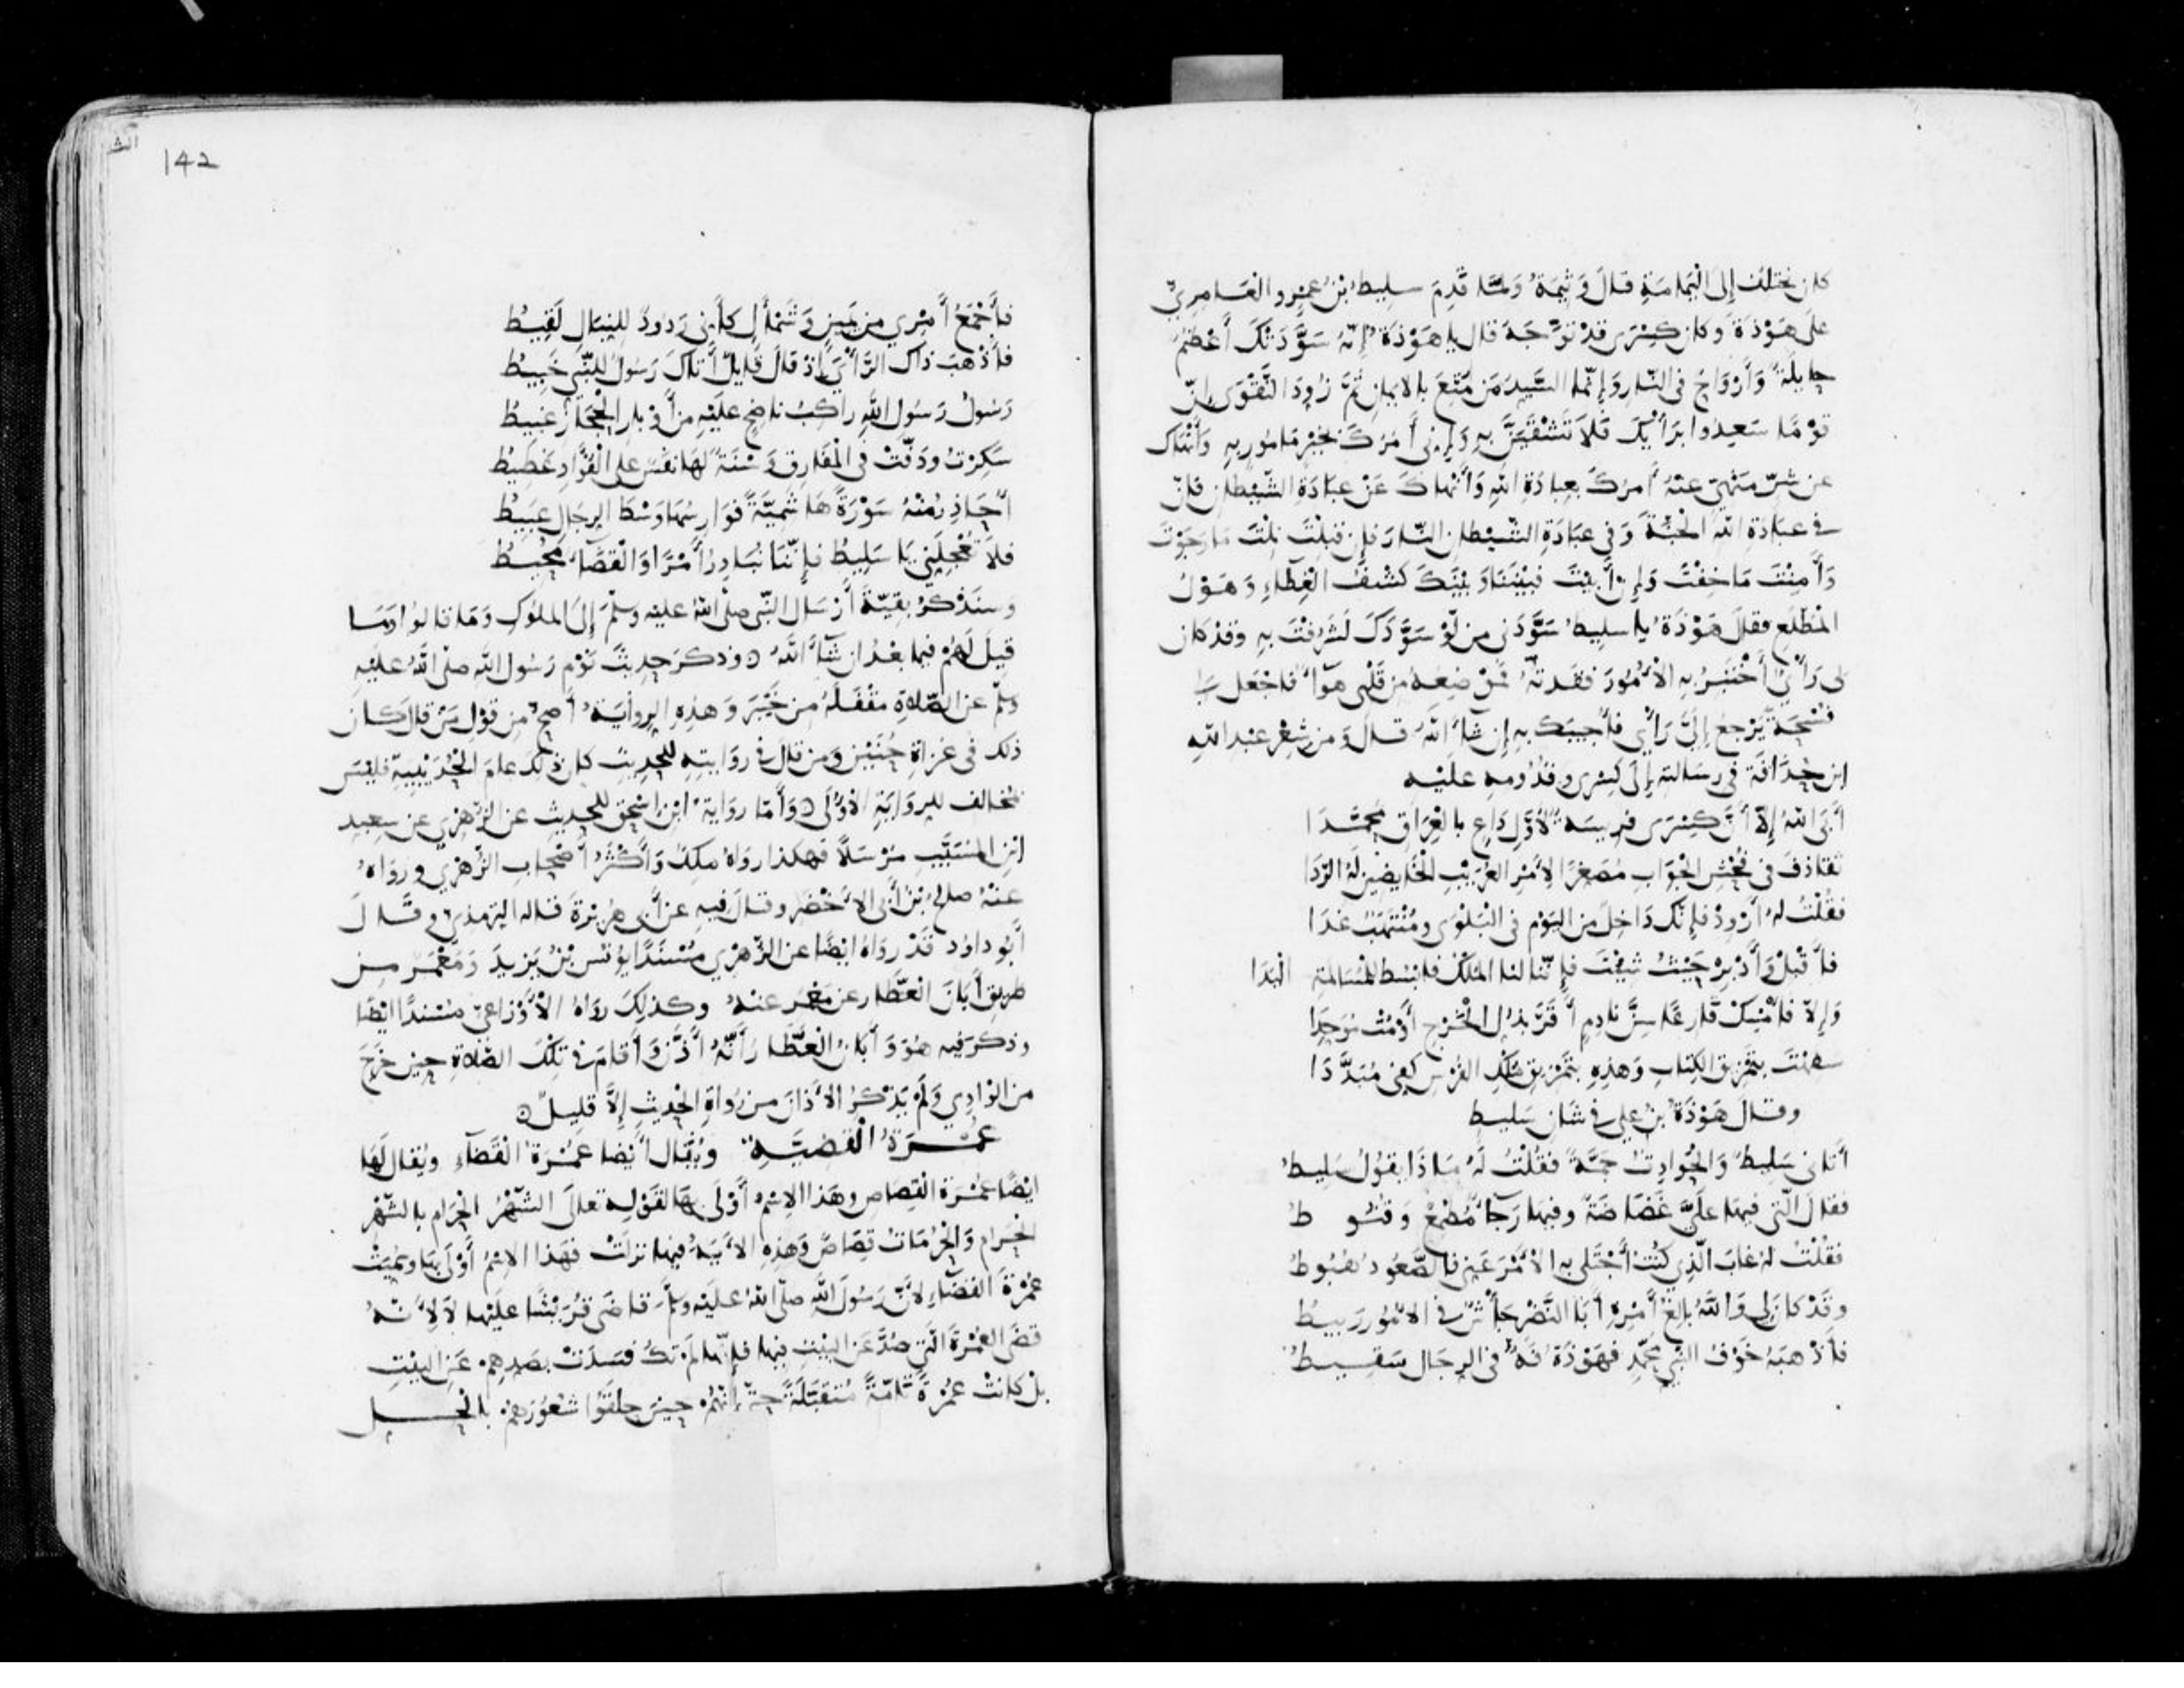 كان يختلف إلى اليمامة قال وَثِيمَةُ ولمّا قَدِمَ سليط بن عمرو العامريّ
على هَوْذَة وكان كسرى قد توّجه قال يا هوذة إنّه سوّدتك أعظم
حايلة وأرواح في النار وإنّما السيد من مُتّع بالايمان ثم زوّد التقوى إنّ
قومًا سعدوا برأيك فلا تشقينّ به وإنى آمرك بخير مامور به وأنهاك
عن شرّ منهيّ عنه آمرك بعبادة الله وأنهاك عن عبادة الشيطان فإنّ
في عبادة الله الجنّة وفي عبادة الشيطان النّار فإن قبلت نلت ما رجوت
وأمنت ما خفت وإن أبيت فبيننا وبينك كشف الغطاء وهول
المطلع فقال هوذة يا سليط سوّدنى من لو سوّدك لشرفت به وقد كان
لى رأي أختبر به الأمور فقدته فموضعه من قلبى هواء فاجعل لى
فسحة يرجع إليّ رأيي فأجيبك به إن شاء الله قال ومن شعر عبدالله
ابن حذافة في رسالته إلى كسرى وقدومه عليه
أبى الله إلّا أنّ كسرى فريسة لأوّل داع بالعراق محمّدا
تقاذف في فحش الجواب مصغرا لأمر العريب الخايضين له الرّدا
فقلت له أرود فإنّك داخل من اليوم في البلوى ومنتهب غدا
فأقبل وأدبر حيث شيت فإنّنا لنا الملك فابسط للمسالمة اليدا
وإلّا فأمسك قارعا سنّ نادم أقرّ بذلّ الخرج أو مت موحدا
سفهت بتمزيق الكتاب وهذه بتمزيق ملك الفرس يكفى مبدّدا
وقال هوذة بن علي في شان سليط
أتانى سليط والحوادث جمّة فقلت له ماذا يقول سليط
فقال التى فيها عليّ غضاضة وفيها رجاء مطمع وقنوط
فقلت له غاب الذي كنت أجتلى به الأمر عنى فالصّعود هبوط
وقد كان لى والله بالغ أمره أبا النضر جأش في الامور ربيط
فأذهبه خوف النبي محمّد فهوذة فهّ في الرجال سقيط
142
فأجمع أمري من يمين وشمأل كأنى ردود للنبال لقيط
فأذهب ذاك الرأي إذ قال قايل أتاك رسول للنبي خبيط
رسول رسول الله راكب ناضح عليه من أوبار الحجاز غبيط
سكرت ودبّت في المفارق وسنة لها نفس على الفؤاد غطيط
أحاذر منه سورة هاشميّة فوارسها وسط الرجال عبيط
فلا تعجلنى يا سليط فإنّنا نبادر أمرا والقضاء محيط
وسنذكر بقيّة أرسال النبي صلى الله عليه وسلم إلى الملوك وما قالوا وما
قيل لهم فيما بعد ان شاء الله وذكر حديث نوم رسول الله صلى الله عليه
وسلم عن الصّلاة مقفله من خيبر وهذه الرواية أصح من قول من قال كان
ذلك في غزاة حنين ومن قال في روايته للحديث كان ذلك عام الحديبية فليس
مخالف للرواية الأولى وأمّا رواية ابن إسحق للحديث عن الزهري عن سعيد
ابن المسيّب مرسلا فهكذا رواه ملك وأكثر أصحاب الزهري ورواه
عنه صالح بن أبى الأخضر وقال فيه عن أبى هريرة قاله الترمذى وقال
أبو داود قد رواه ايضا عن الزهري مسندا يونس بن يزيد ومعمر من
طريق أبان العطّار عن معمر عنه وكذلك رواه الأوزاعيّ مسندا ايضا
وذكر فيه هو وأبان العطّار أنّه أذّن وأقام في تلك الصلاة حين خرج
من الوادي ولم يذكر الأذان من رواة الحديث إلّا قليل
عمرة القضيّة ويقال أيضا عمرة القضآء ويقال لها
ايضا عمرة القصاص وهذا الاسم أولى بها لقوله تعلى الشهر الحرام بالشهر
الحرام والحرمات قصاص وهذه الأية فيها نزلت فهذا الاسم أولى بها وسميت
عمرة القضآء لأنّ رسول الله صلى الله عليه وسلم قاضى قريشا عليها لا لأنه
قضى العمرة التى صدّ عن البيت فيها فإنّها لم تك فسدت بصدهم عن البيت
بل كانت عمرة تامّة متقبّلة حتى إنهم حين حلقوا شعورهم بالحل